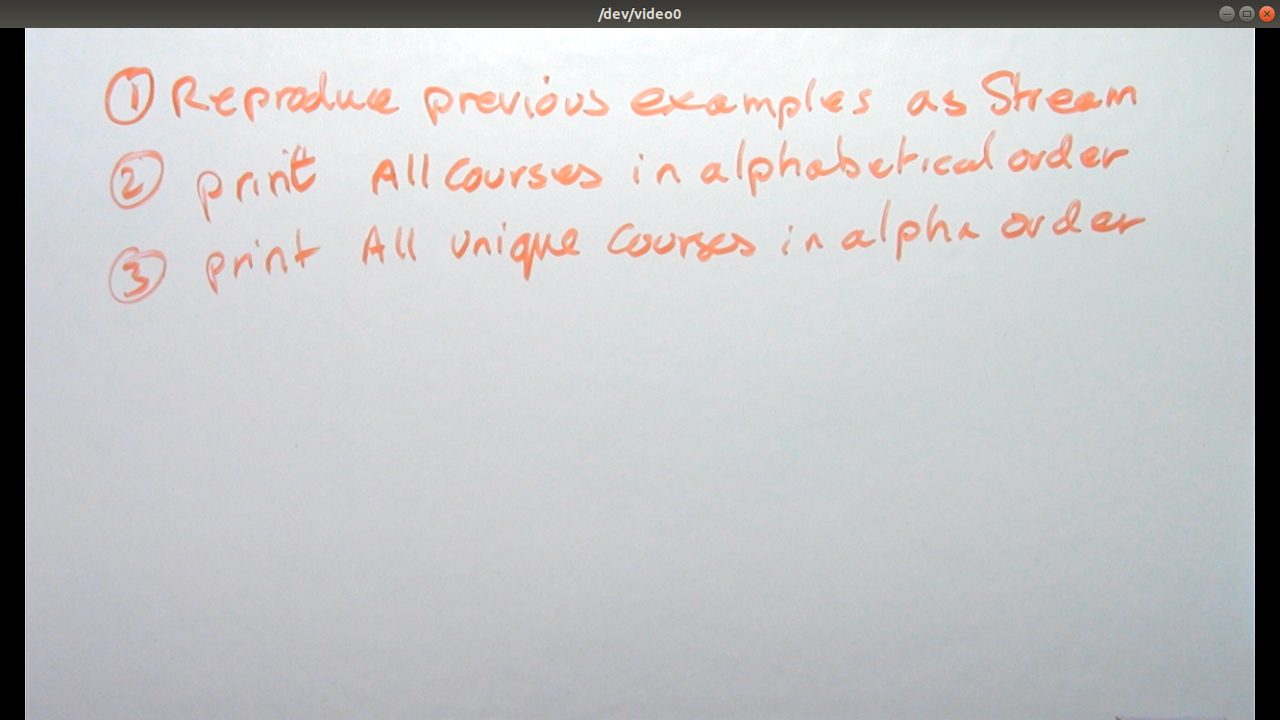 /dev/video0
① Reproduce previous examples as Stream
② print All courses in alphabetical order
③ print All unique courses in alpha order